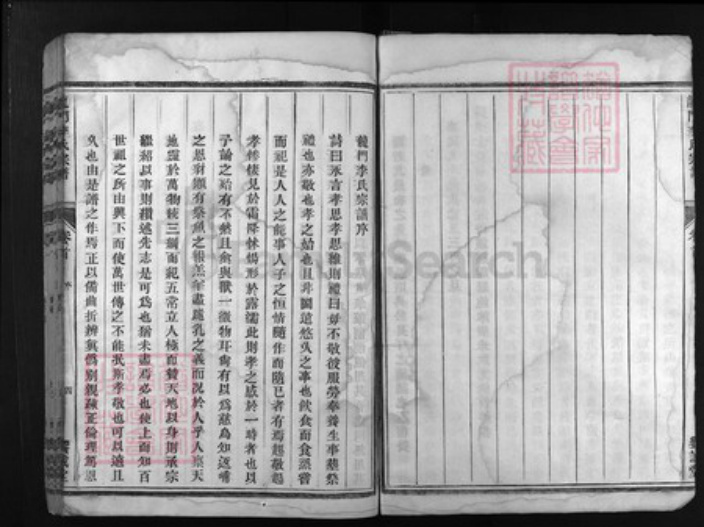 龍門李氏宗譜序
詩曰永言孝思孝思維則禮曰毋不敬彼服勞奉養生事葬祭
禮也亦敬也孝之始也且非闊遠悠久之事也飲食而食蒸嘗
而祀是人人之能事人子之恒情隨作而隨已者有焉起敬起
孝悽愴見於霜降怵惕形於露濡此則孝之感於一時者也以
子論之殆有不然且禽與獸一微物耳尚有以為慈烏知返哺
之恩豺獺有祭魚之報羔羊盡跪乳之義而況於人乎人稟天
地靈於萬物後三綱而範五常立人極而贊天地以身則承宗
繼祧以事則纘述先志是可為也猶未盡焉必也使上而知百
世祖之所由興下而使萬世傳之不能泯斯孝敬也可以遠且
久也由是譜之作焉正以備曲折辨眞偽別親疎正倫理篤恩
龍門李氏宗譜
卷首
序
四